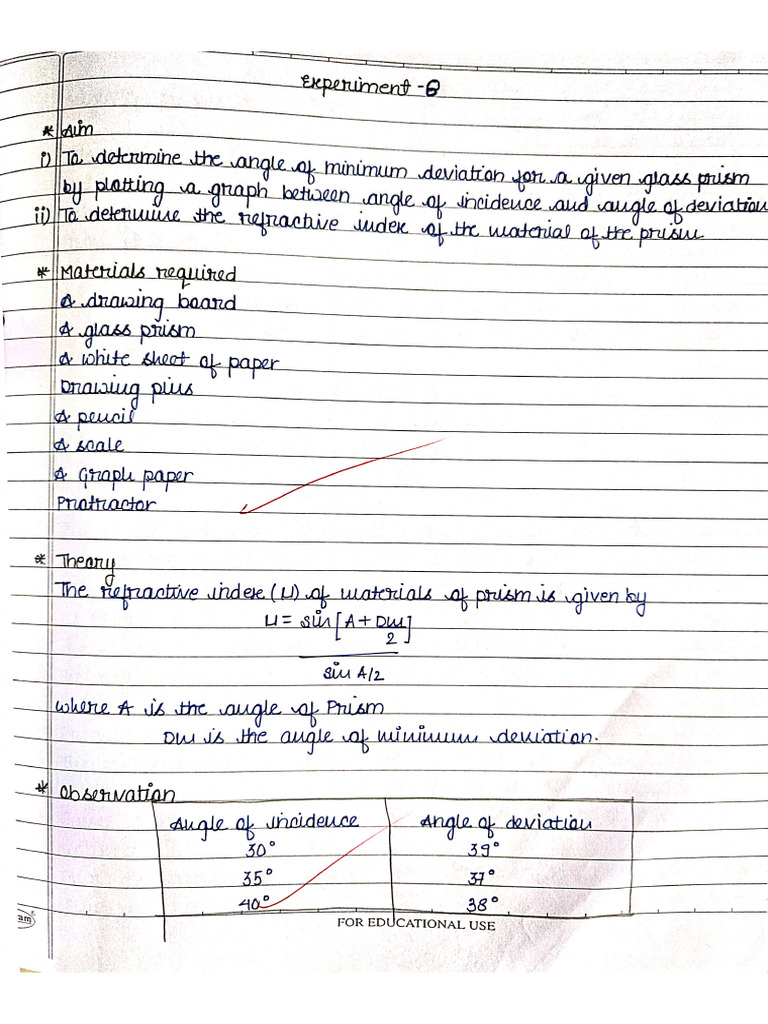 Experiment - 6
* Aim
i) To determine the angle of minimum deviation for a given glass prism
by plotting a graph between angle of incidence and angle of deviation
ii) To determine the refractive index of the material of the prism
* Materials required
A drawing board
A glass prism
A white sheet of paper
Drawing pins
A pencil
A scale
A Graph paper
Protractor
* Theory
The refractive index (μ) of materials of prism is given by
μ = sin [A + Dm
2 ]
sin A/2
where A is the angle of Prism
Dm is the angle of minimum deviation.
* Observation
Angle of incidence Angle of deviation
30° 39°
35° 37°
40° 38°
am
FOR EDUCATIONAL USE